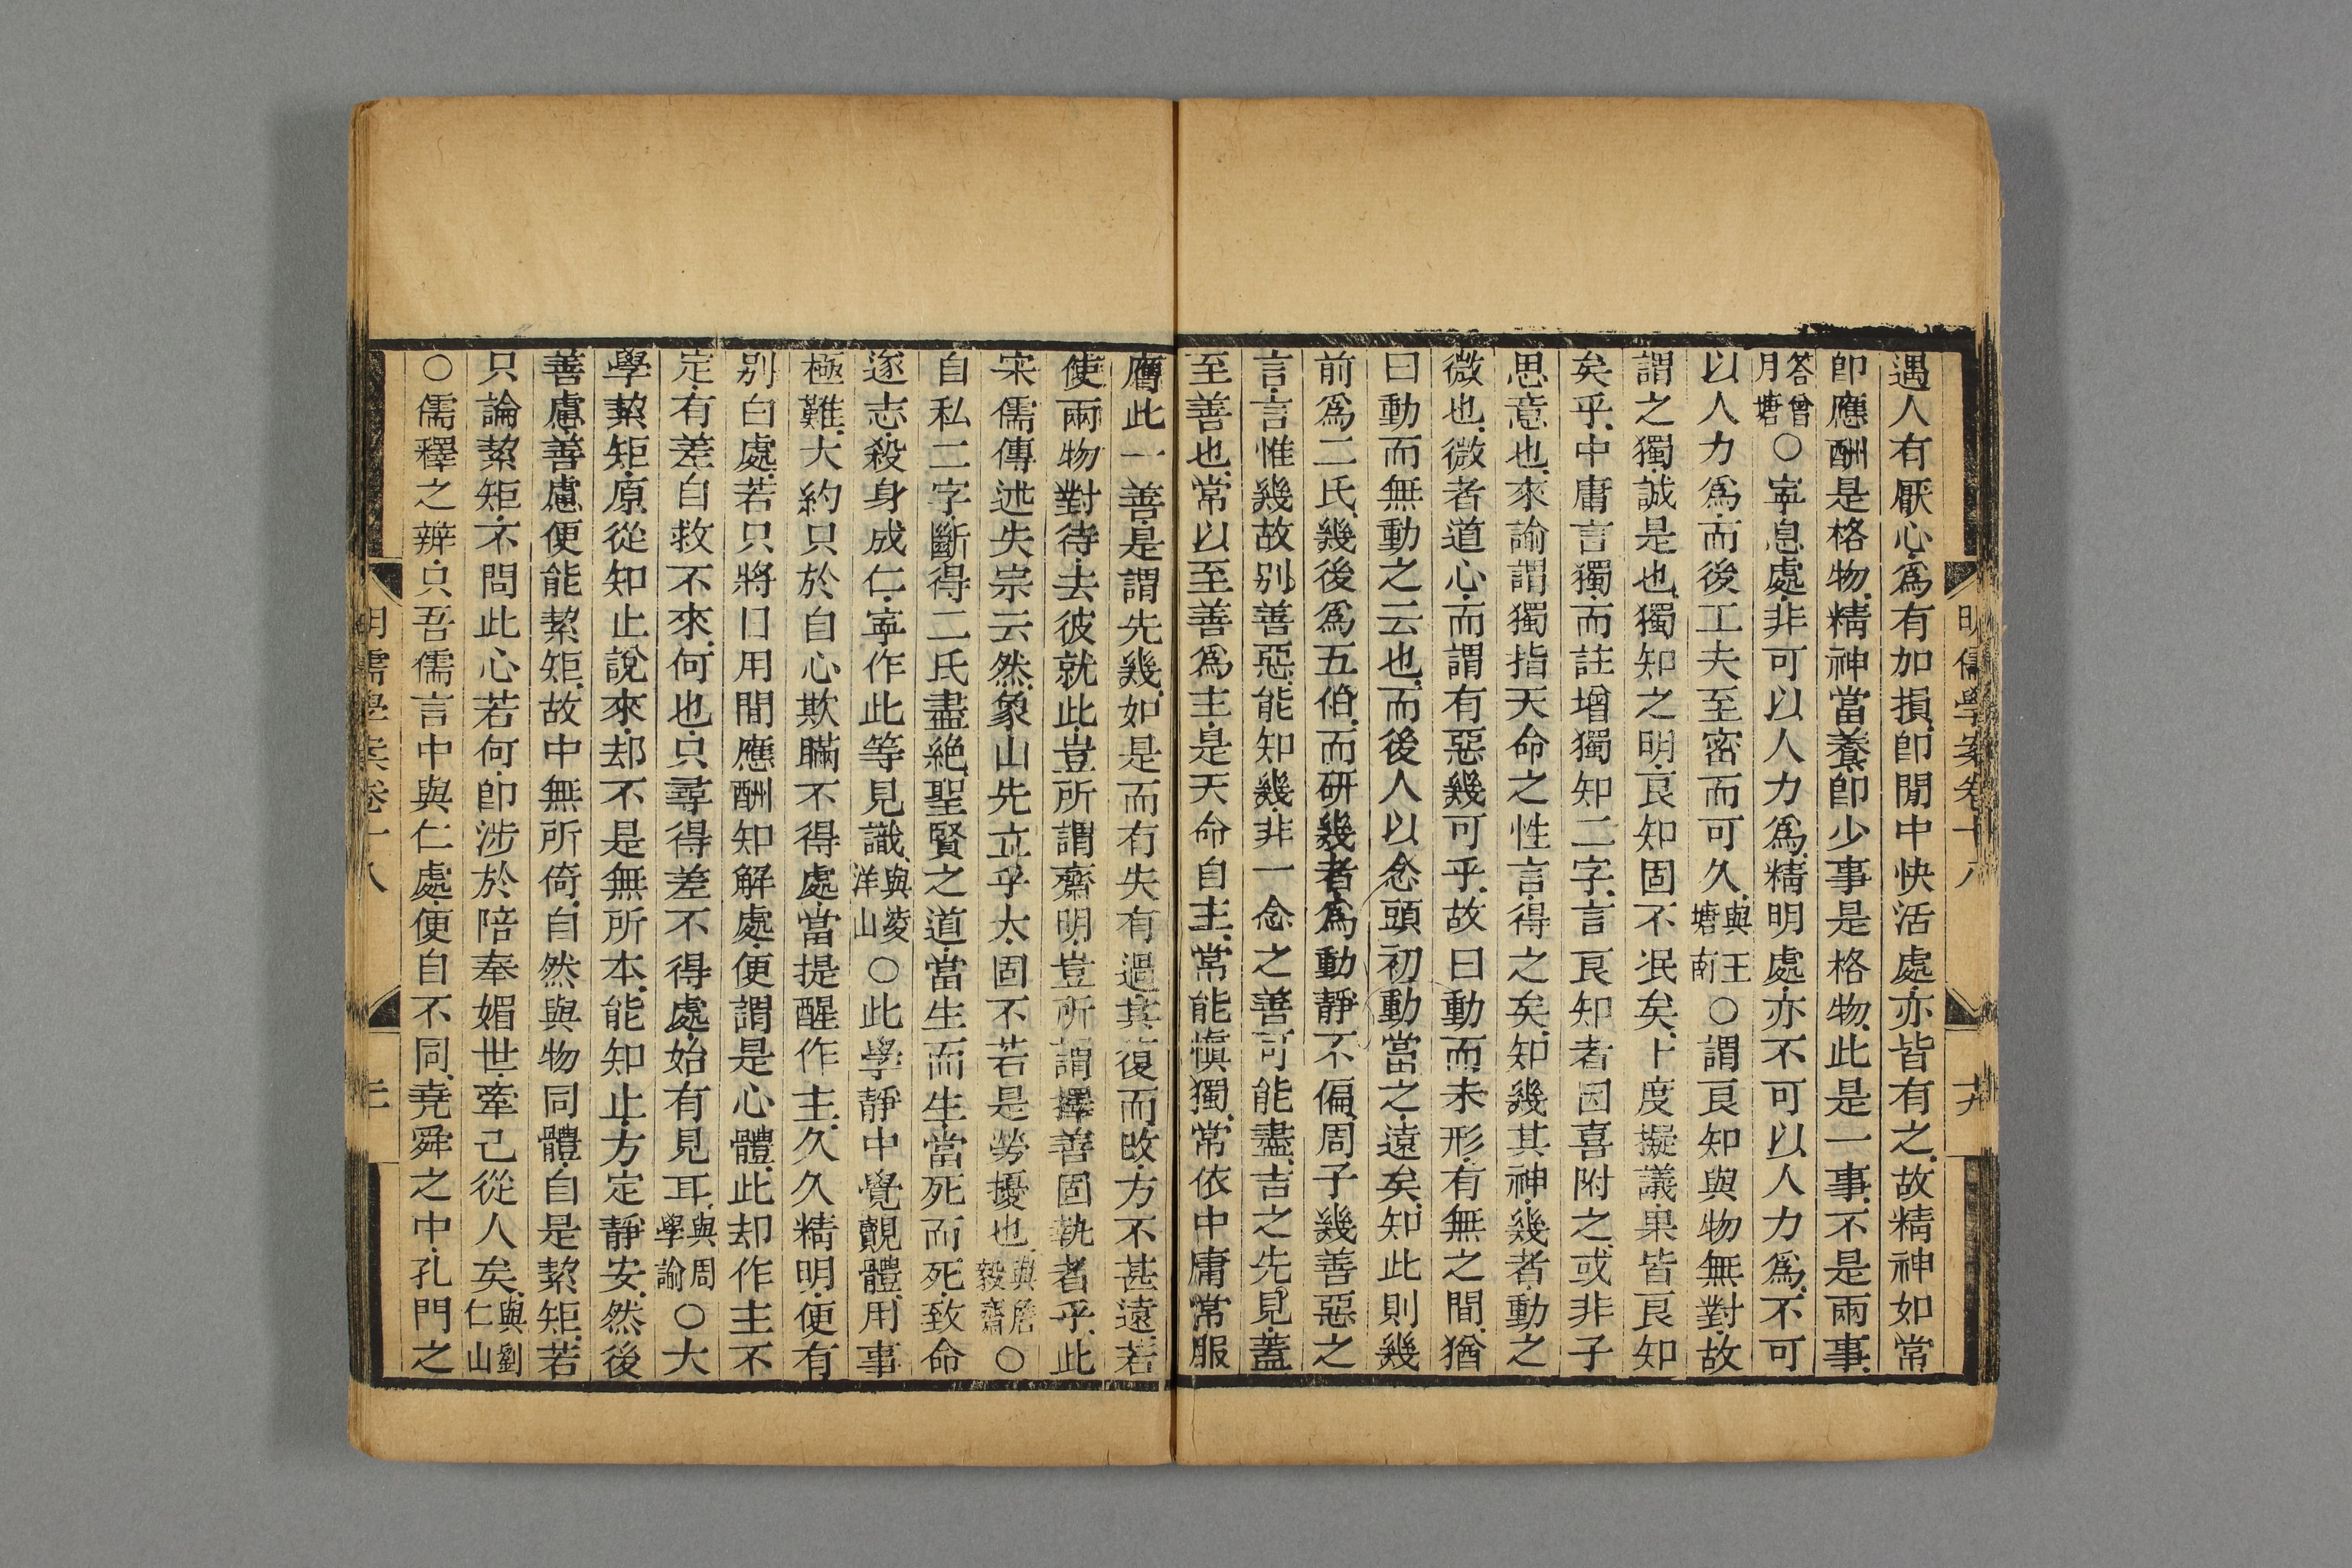 遇人有厭心爲有加損卽閒中快活處亦皆有之故精神如常
卽應酬是格物精神當養卽少事是格物此是一事不是兩事
答曾月塘○寧息處非可以人力爲精明處亦不可以人力爲不可
以人力爲而後工夫至密而可久與王塘南○謂良知與物無對故
謂之獨誠是也獨知之明良知固不泯矣卜度擬議果皆良知
矣乎中庸言獨而註增獨知二字言良知者因喜附之或非子
思意也來諭謂獨指天命之性言得之矣知幾其神幾者動之
微也微者道心而謂有惡幾可乎故曰動而未形有無之間猶
曰動而無動之云也而後人以念頭初動當之遠矣知此則幾
前爲二氏幾後爲五伯而研幾者爲動靜不偏周子幾善惡之
言言惟幾故别善惡能知幾非一念之善可能盡吉之先見蓋
至善也常以至善爲主是天命自主常能愼獨常依中庸常服
膺此一善是謂先幾如是而有失有過其復而改方不甚遠若
使兩物對待去彼就此豈所謂齋明豈所謂擇善固執者乎此
宋儒傳述失宗云然象山先立乎大固不若是勞擾也與詹毅齋○
自私二字斷得二氏盡絶聖賢之道當生而生當死而死致命
遂志殺身成仁寧作此等見識與凌洋山○此學靜中覺覿體用事
極難大約只於自心欺瞞不得處當提醒作主久久精明便有
别白處若只將日用間應酬知解處便謂是心體此却作主不
定有差自救不來何也只尋得差不得處始有見耳與周學諭○大
學絜矩原從知止說來却不是無所本能知止方定靜安然後
善慮善慮便能絜矩故中無所倚自然與物同體自是絜矩若
只論絜矩不問此心若何卽涉於陪奉媚世牽己從人矣與劉仁山
○儒釋之辨只吾儒言中與仁處便自不同堯舜之中孔門之
明儒學案卷十八
十九
明儒學案卷十八
二十